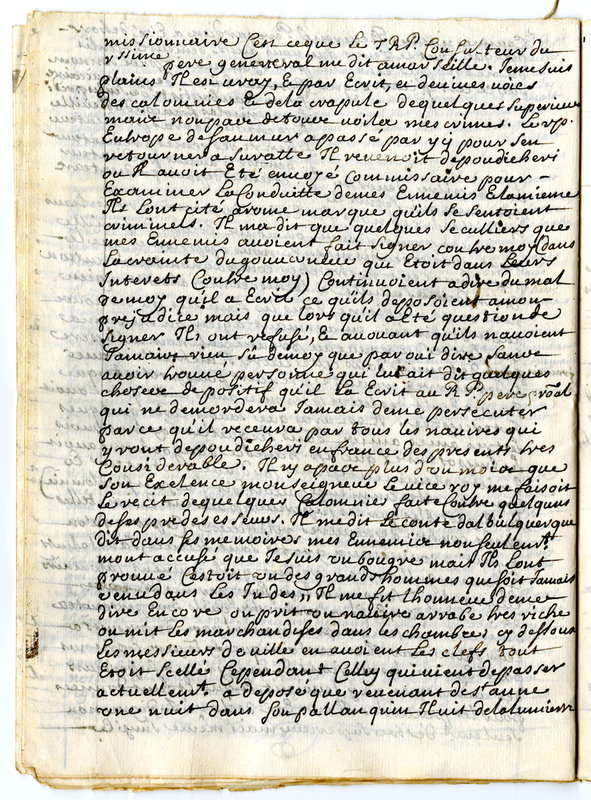 missionnaire C'est ce que le T R P. Consulteur du
rssime pere geneveral me dit a marseille. Je me suis
plains Il est vray, & par Ecrit, et de vives voies
des calomnies & de la crapule de quelques Superieurs
mais non pas de toux voila mes crimes. Le r p.
Eutrope de saumur a passé par yy pour sen
retourner a Suratte Il revenoit de poudicheri
ou Il avoit Eté envoyé Commissaire pour -
Examiner La Conduitte de mes Ennemis Et la mienne
Ils Lont cité a rome marque qu'ils se sentoient
criminels. Il ma dit que quelques seculliers que
mes Ennemis avoient fait signer contre moy (dans
La crainte du gouverneur qui Etoit dans Leurs
Interets Contre moy) Continuoient a dire du mal
de moy qu'il a Ecrit ce qu'ils deposoient a mon
prejudice mais que lors qu'il a Eté question de
signer Ils ont refusé, & avouant qu'ils n'avoient
Jamais rien sû de moy que par oui dire sans
avoir trouve personne qui lui ait dit quelques
choses de positif qu'il La Ecrit au R P. pere proãl
qui ne demordera Jamais de me persecuter
par ce qu'il recevra par tous les navires qui
yront de poudichery en france des presents tres
Considerable. Il ny a pas plus d'un mois que
Son Exelence monseigneur Le vice roy me faisoit
Le recit de quelques Calomnie faite Contre quelquns
de ses predesesseurs. Il me dit Le conte dalbulquerque
dit dans ses memoires mes Ennemis non seulemt
mont accusé que Je suis un bougre mais Ils Lont
prouvé C'estoit un des grands hommes que soit Jamais
venu dans Les Indes,, Il me fit Lhonneur de me
dire Encore on prit un navire arrabe tres riche
on mit Les marchandises dans les chambres cy dessous
Les messieurs de ville en avoient Les clefs tout
Etoit scellé Cependant Celluy qui vient de passer
actuellemt. a deposé que revenant de ste anne
une nuit dans son pallanquin Il vit de la lumiere